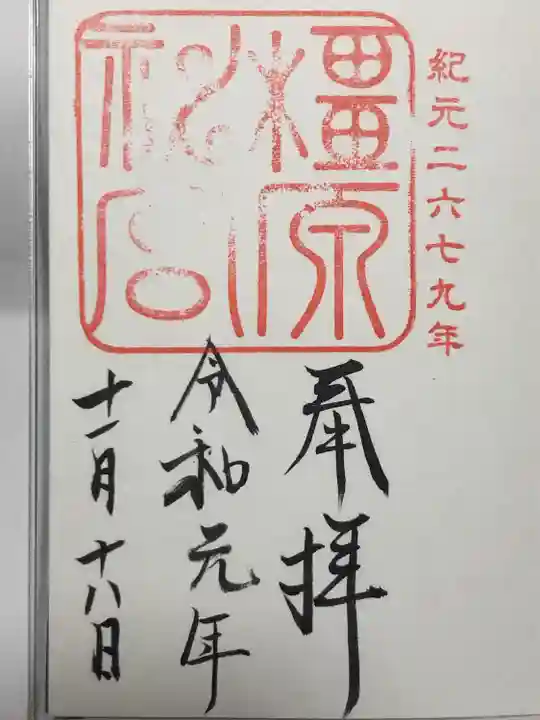 紀元二六七九年
橿原
神宮
奉拝
令和元年
十一月十八日